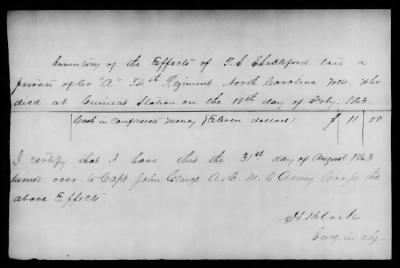 Inventory of the Effects of T. S. Shackleford late a
private of Co "A" 54th Regiment North Carolina Vols. who
died at Guineas Station on the 18th day of Feby. 1863.
Cash in Confederate money (Eleven dollars) $ 11 | 00
I certify that I have this the 31st day of August 1863
turned over to Capt John George A. Q. M. 2 Army Corps the
above Effects.
Surg in chg.